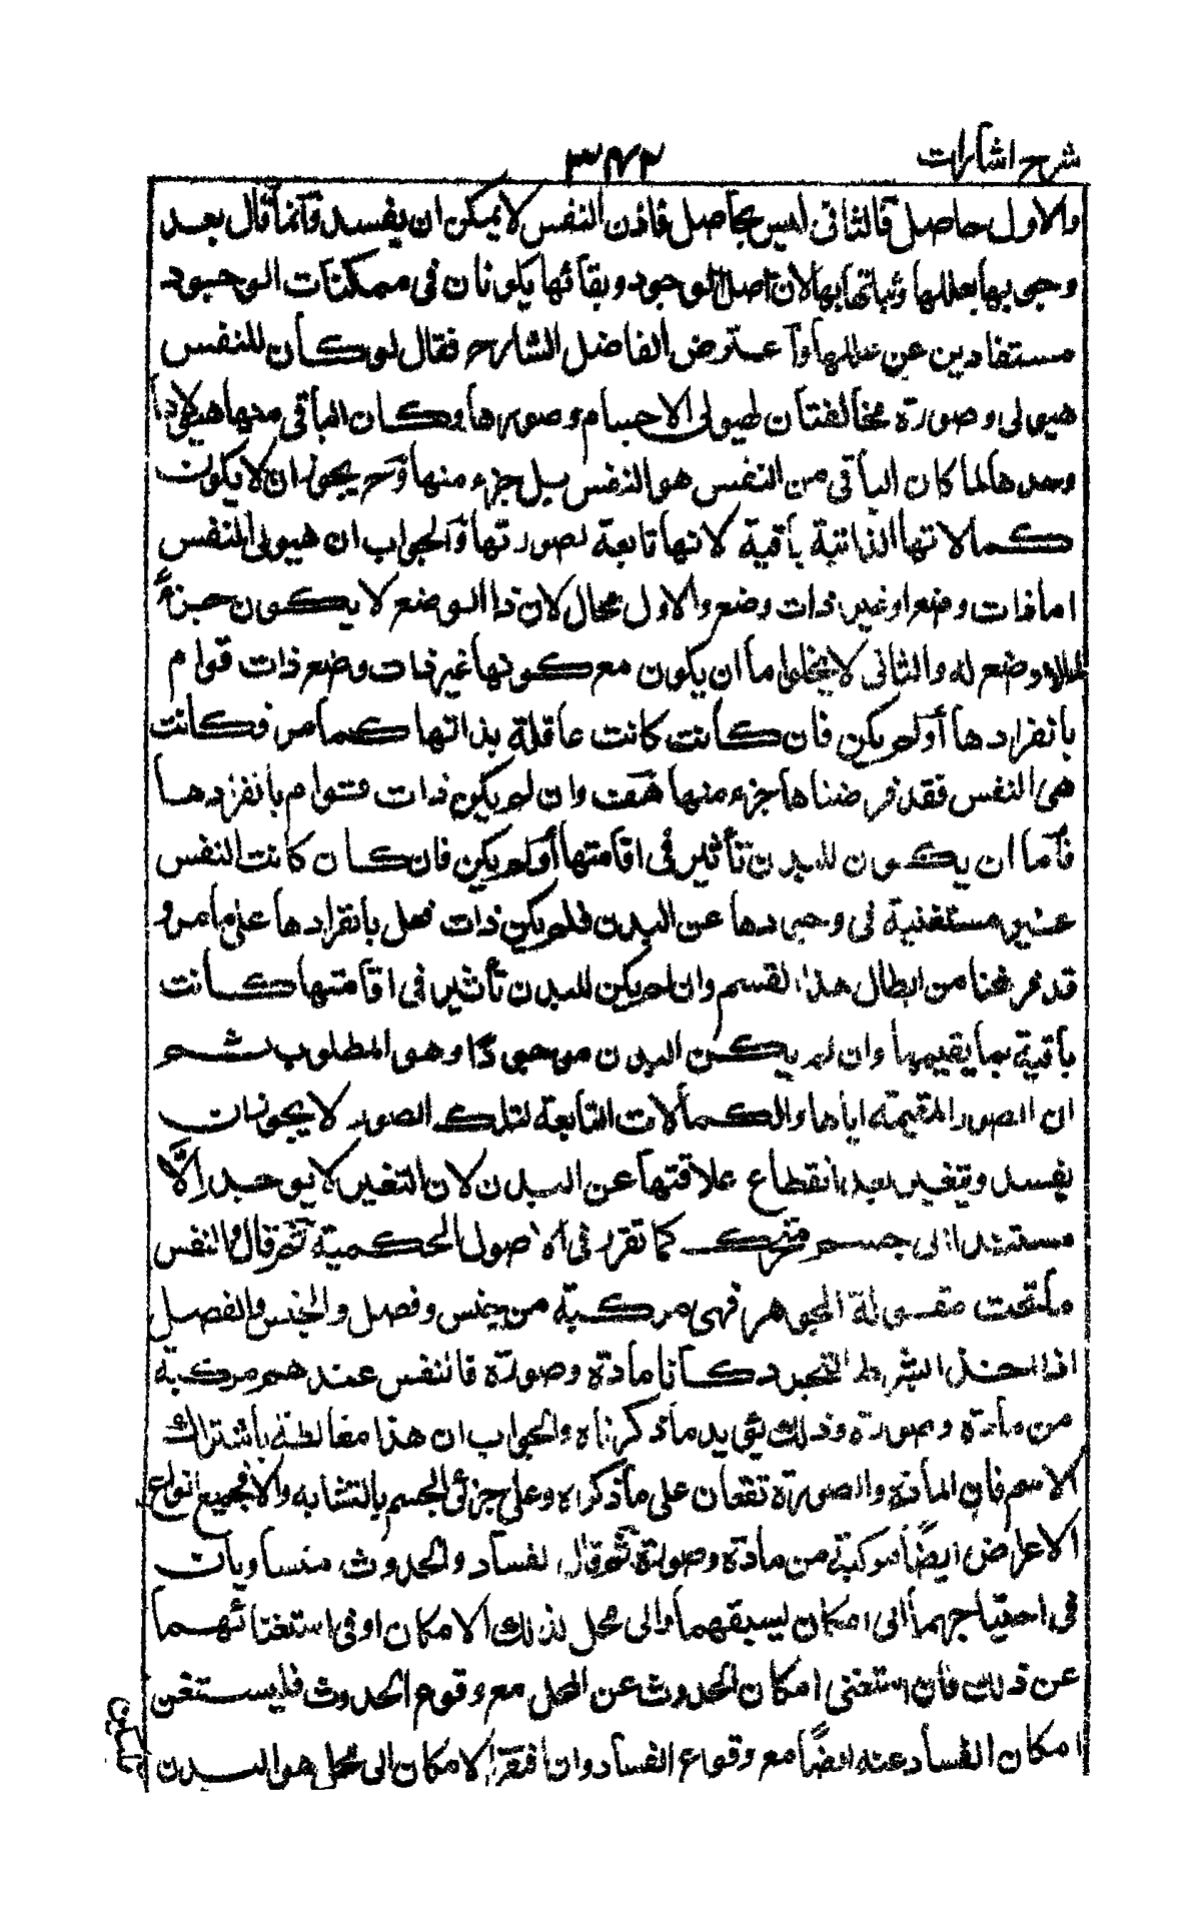 شرح اشارات
٣٤٢
والاول حاصل فالثانى ليس بحاصل فاذن النفس لا يمكن ان يفسد وآنما قال بعد
وجوبها بعللها وثباتها بها لان اصل الوجود وبقائها يكونان فى ممكنات الوجود
مستفادين عن عللها وآعترض الفاضل الشارح فقال لو كان للنفس
هيولى وصورة مخالفتان لهيولى الاجسام وصورها وكان الباقى منها هيولاها
وحدها لما كان الباقى من النفس هو النفس بل جزء منها وح يجوز ان لا يكون
كمالاتها الذاتية باقية لانها تابعة لصورتها وآلجواب ان هيولى النفس
اما ذات وضع او غير ذات وضع والاول محال لان ذا الوضع لا يكون جزءً
لما لا وضع له والثانى لا يخلو اما ان يكون مع كونها غير ذات وضع ذات قوام
بانفرادها أو لم يكن فان كانت كانت عاقلة بذاتها كما مر فكانت
هى النفس فقد فرضناها جزء منها هف وان لم يكن ذات قوام بانفرادها
فآما ان يكون للبدن تأثير فى اقامتها أو لم يكن فان كان كانت النفس
غير مستغنية فى وجودها عن البدن فلم يكن ذات فعل بانفرادها على ما مر و
قد فرغنا من ابطال هذا القسم وان لم يكن للبدن تأثير فى اقامتها كانت
باقية بما يقيمها وان لم يكن البدن موجودًا وهو المطلوب ثم
ان الصور المقيمة اياها والكمالات التابعة لتلك الصور لا يجوز ان
يفسد ويتغير بعد انقطاع علاقتها عن البدن لان التغير لا يوجد اِلَّا
مستندا الى جسم متحرك كما تقرر فى الاصول الحكمية ثم قال والنفس
ما تحت مقولة الجوهر فهى مركبة من جنس وفصل والجنس والفصل
اذا اخذا بشرط التجرد كانا مادة وصورة فالنفس عندهم مركبة
من مادة وصورة وذلك يؤيد ما ذكرناه والجواب ان هذا مغالطة باشتراك
الاسم فان المادة والصورة تقعان على ما ذكراه وعلى جزئى الجسم بالتشابه والا فجميع انواع
الاعراض ايضًا مركبة من مادة وصورة ثم قال الفساد والحدوث متساويان
فى احتياجهما الى امكان يسبقهما والى محل لذلك الامكان او فى استغنائهما
عن ذلك فان استغنى امكان الحدوث عن المحل مع وقوع الحدوث فليستغن
امكان الفساد عنه ايضًا مع وقوع الفساد وان افتقر الامكان الى محل هو البدن